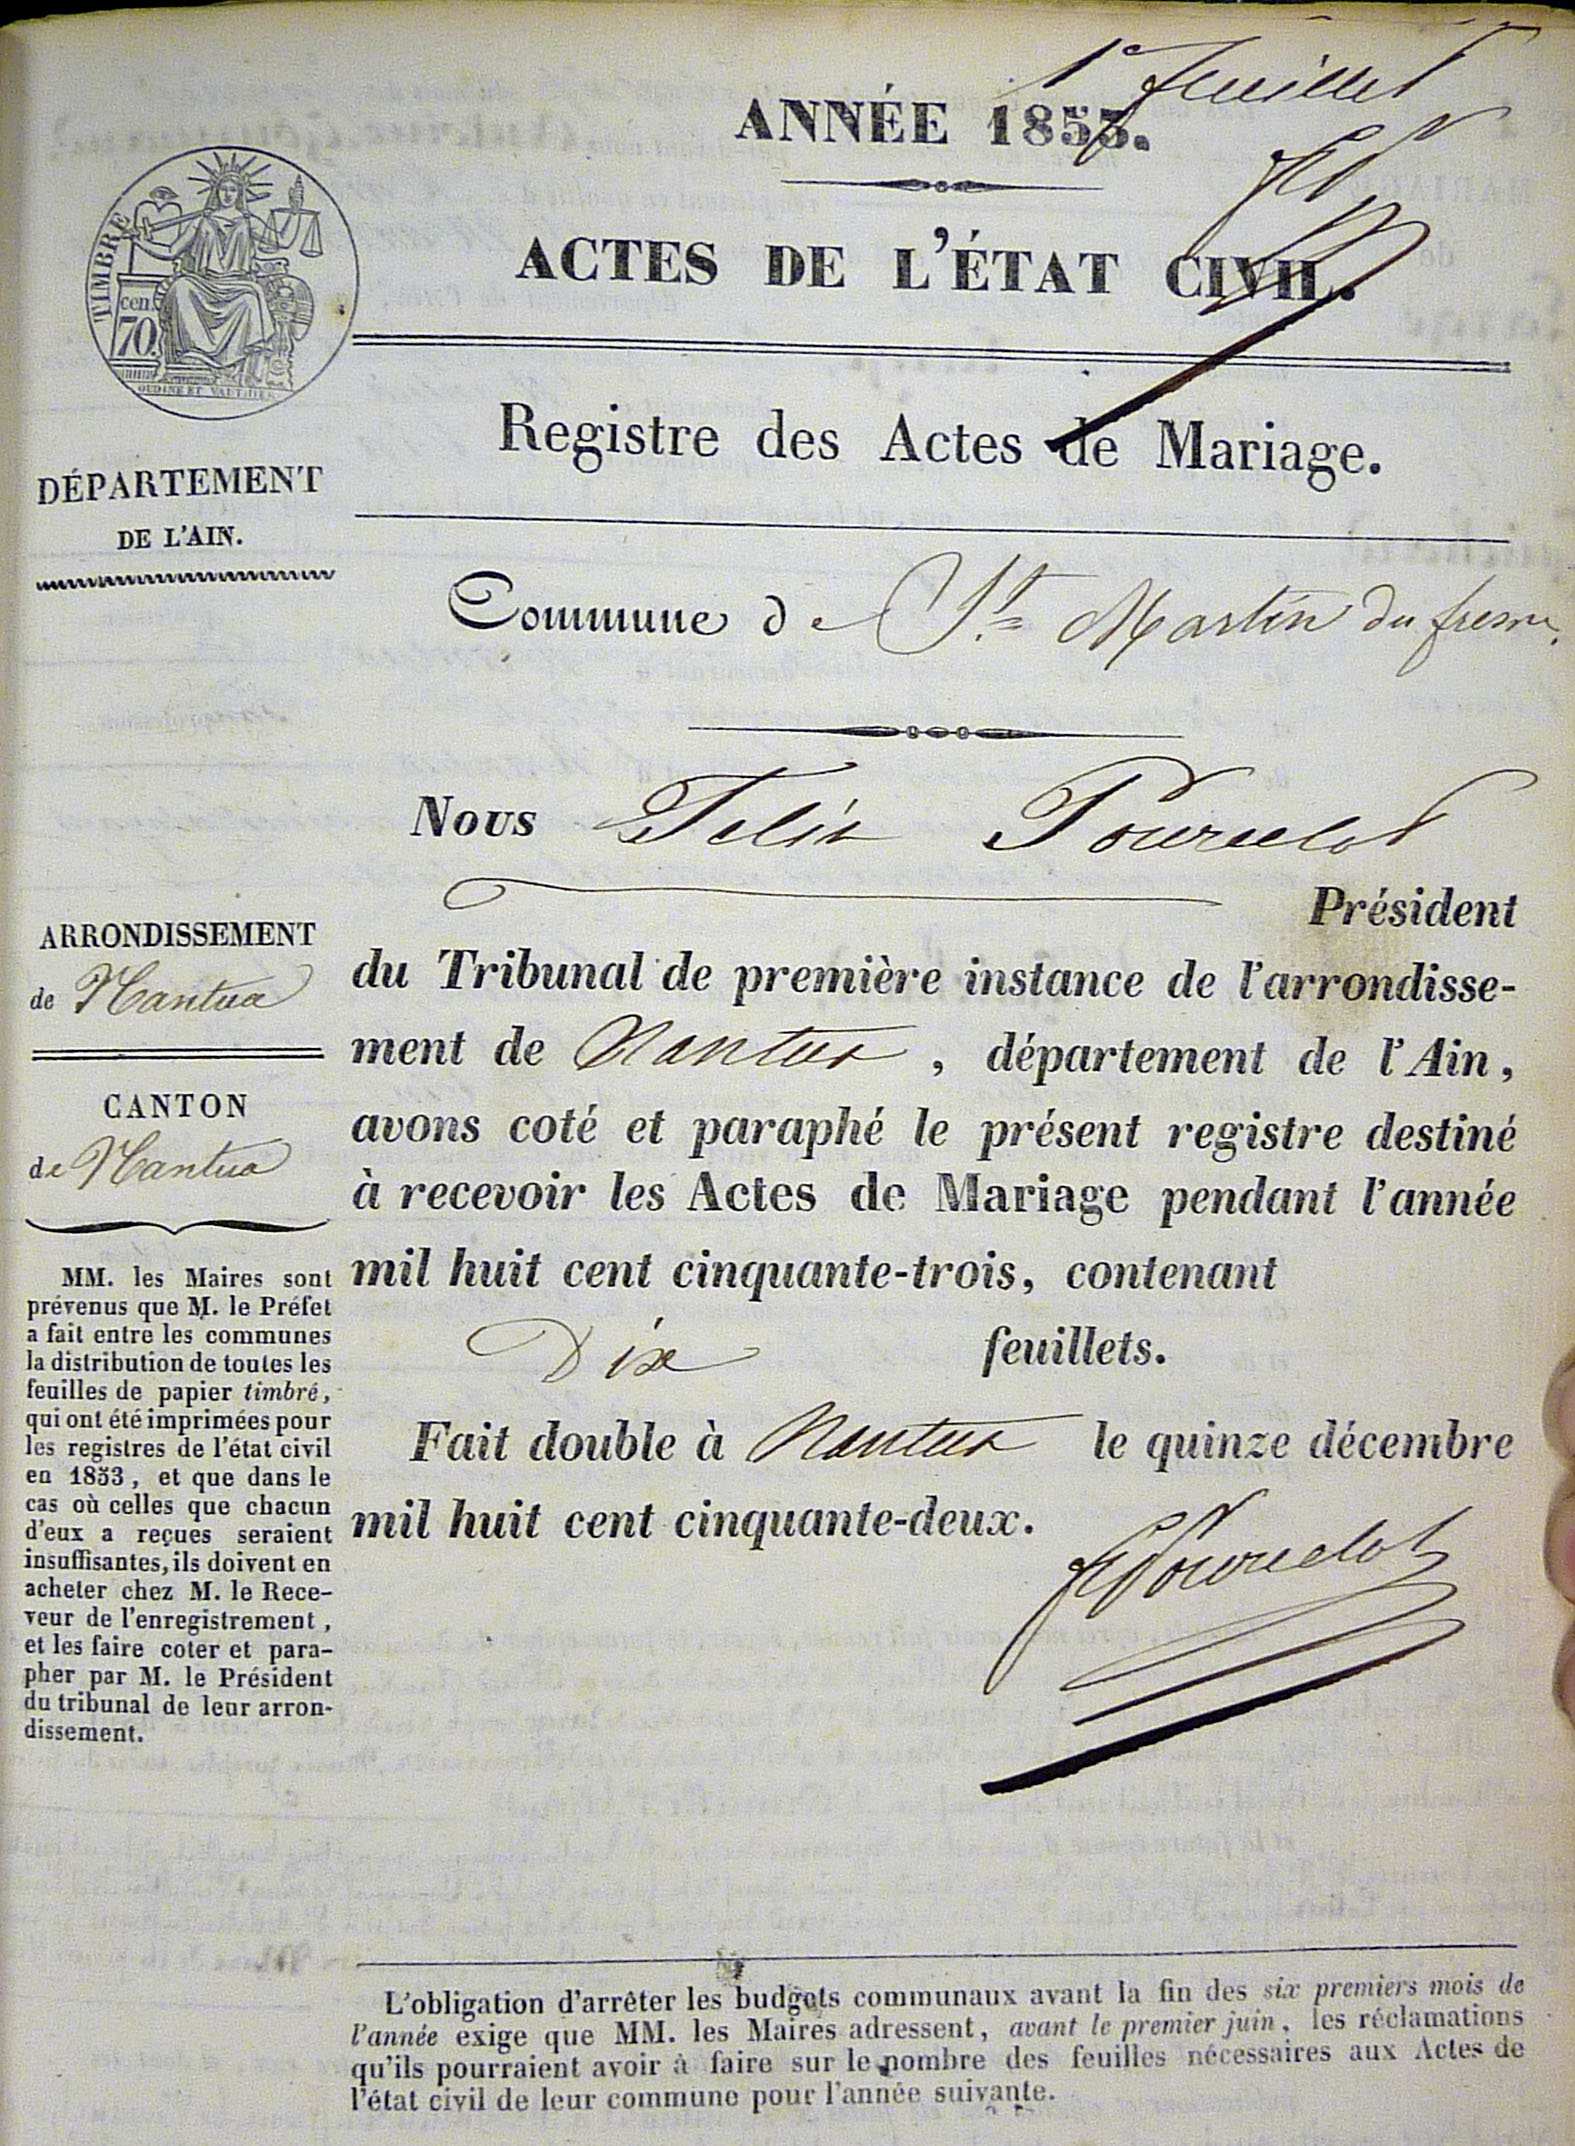 1er feuillet
ANNÉE 1853.
TIMBRE
cen.
70
OUDINÉ ET VAUTHIER
ACTES DE L'ÉTAT CIVIL.
Registre des Actes de Mariage.
DÉPARTEMENT
DE L'AIN.
Commune de St. Martin du fresne.
Nous Felix Pourcelot
Président
du Tribunal de première instance de l'arrondisse-
ment de Nantua, département de l'Ain,
avons coté et paraphé le présent registre destiné
à recevoir les Actes de Mariage pendant l'année
mil huit cent cinquante-trois, contenant
Dix feuillets.
Fait double à Nantua le quinze décembre
mil huit cent cinquante-deux.
Pourcelot
ARRONDISSEMENT
de Nantua
CANTON
de Nantua
MM. les Maires sont
prévenus que M. le Préfet
a fait entre les communes
la distribution de toutes les
feuilles de papier timbré,
qui ont été imprimées pour
les registres de l'état civil
en 1853, et que dans le
cas où celles que chacun
d'eux a reçues seraient
insuffisantes, ils doivent en
acheter chez M. le Rece-
veur de l'enregistrement,
et les faire coter et para-
pher par M. le Président
du tribunal de leur arron-
dissement.
L'obligation d'arrêter les budgets communaux avant la fin des six premiers mois de
l'année exige que MM. les Maires adressent, avant le premier juin, les réclamations
qu'ils pourraient avoir à faire sur le nombre des feuilles nécessaires aux Actes de
l'état civil de leur commune pour l'année suivante.